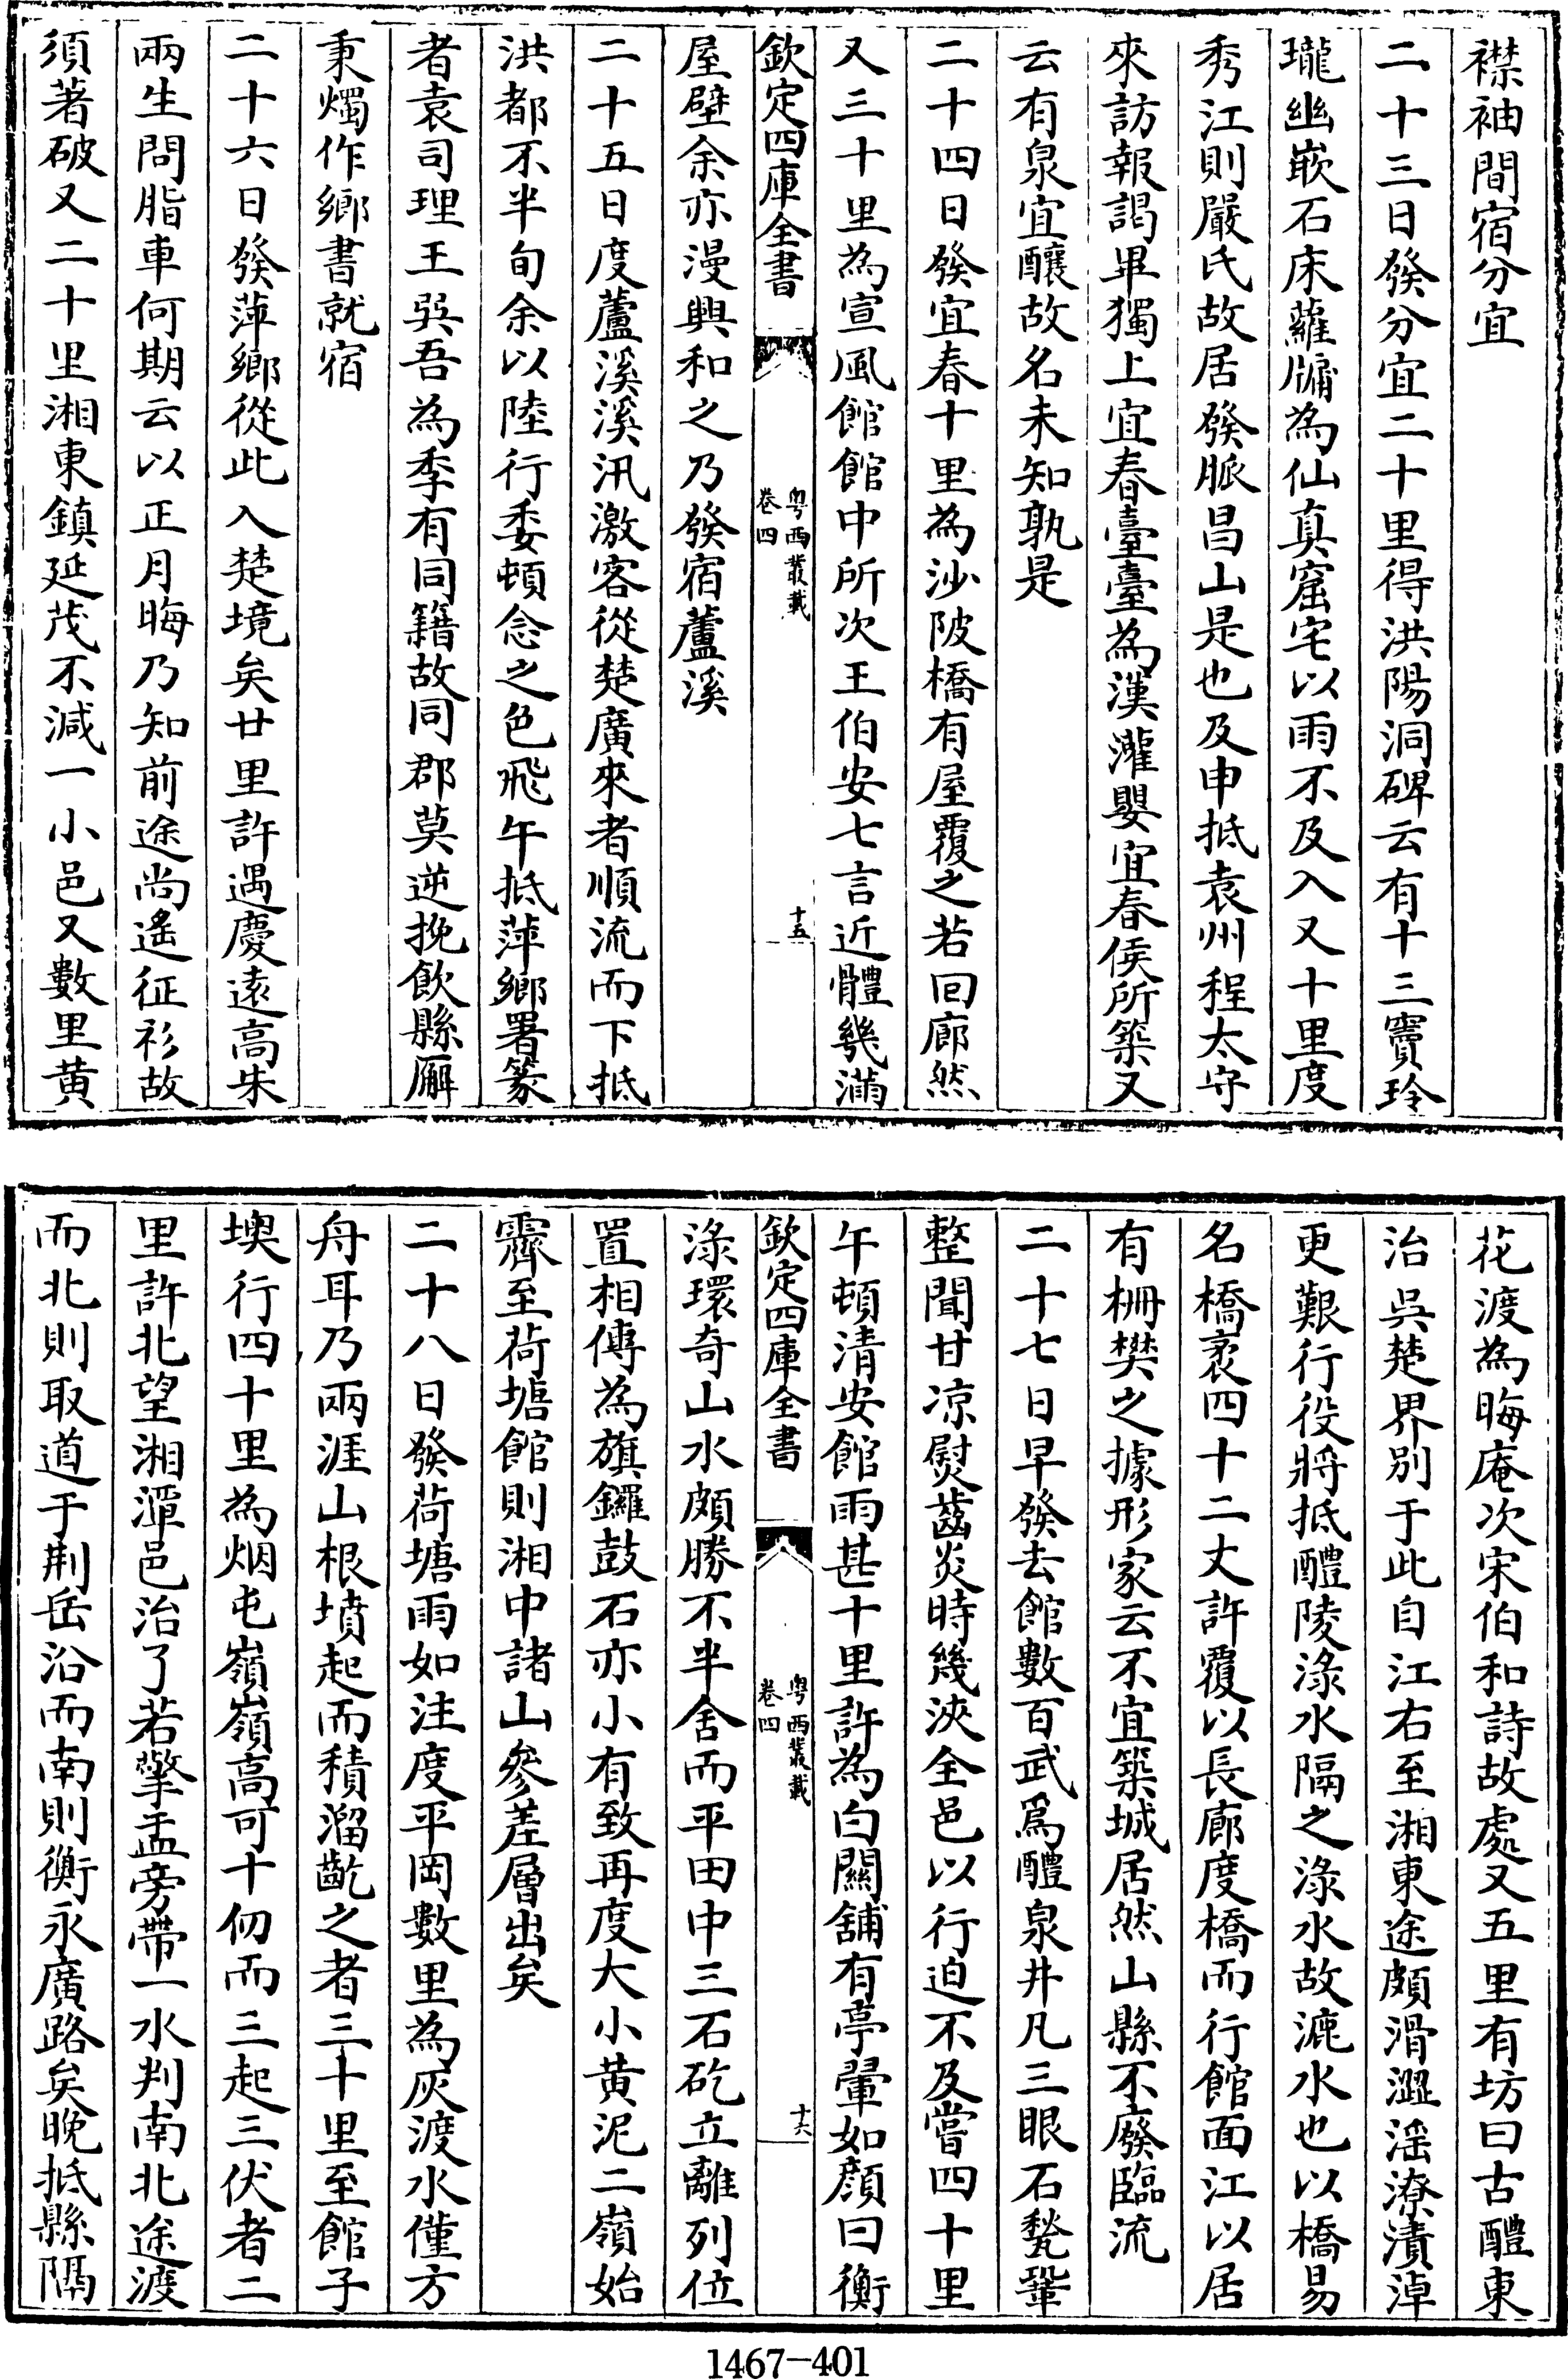 襟袖間宿分宜
二十三日發分宜二十里得洪陽洞碑云有十三竇玲
瓏幽嵌石床蘿牗為仙真窟宅以雨不及入又十里度
秀江則嚴氏故居發脈昌山是也及申抵袁州程太守
來訪報謁畢獨上宜春臺臺為漢灌嬰宜春侯所築又
云有泉宜釀故名未知孰是
二十四日發宜春十里為沙陂橋有屋覆之若回廊然
又三十里為宣風館館中所次王伯安七言近體幾滿
欽定四庫全書
粤西叢載
卷四
十五
屋壁余亦漫興和之乃發宿蘆溪
二十五日度蘆溪溪汛激客從楚廣來者順流而下抵
洪都不半旬余以陸行委頓念之色飛午抵萍鄉署篆
者袁司理王吳吾為季有同籍故同郡莫逆挽飲縣廨
秉燭作鄉書就宿
二十六日發萍鄉從此入楚境矣廿里許遇慶遠高朱
兩生問脂車何期云以正月晦乃知前途尚遙征衫故
須著破又二十里湘東鎮延茂不減一小邑又數里黄
花渡為晦庵次宋伯和詩故處又五里有坊曰古醴東
治吳楚界别于此自江右至湘東途頗滑澀滛潦漬淖
更艱行役將抵醴陵淥水隔之淥水故漉水也以橋易
名橋袤四十二丈許覆以長廊度橋而行館面江以居
有柵樊之據形家云不宜築城居然山縣不廢臨流
二十七日早發去館數百武爲醴泉井凡三眼石甃鞏
整聞甘凉熨齒炎時幾浹全邑以行迫不及嘗四十里
午頓清安館雨甚十里許為白關舖有亭翬如顔曰衡
欽定四庫全書
粤西叢載
卷四
十六
淥環奇山水頗勝不半舍而平田中三石矻立離列位
置相傳為旗鑼鼓石亦小有致再度大小黄泥二嶺始
霽至荷塘館則湘中諸山參差層出矣
二十八日發荷塘雨如注度平岡數里為灰渡水僅方
舟耳乃兩涯山根墳起而積溜齕之者三十里至館子
墺行四十里為烟屯嶺嶺高可十仞而三起三伏者二
里許北望湘潭邑治了若擎盂旁帶一水判南北途渡
而北則取道于荆岳沿而南則衡永廣路矣晚抵縣隔
1467-401